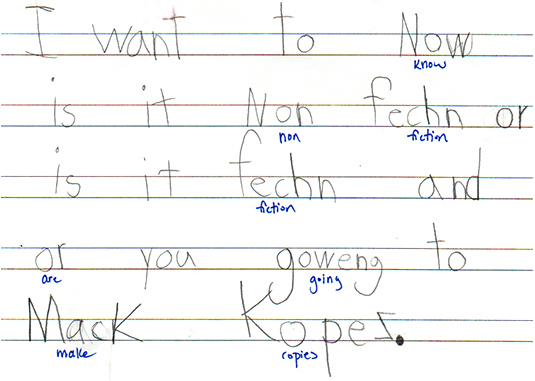 I want to Now
know
is it Non fechn or
non fiction
is it fechn and
fiction
or you goweng to
are going
Mack Kopes.
make copies